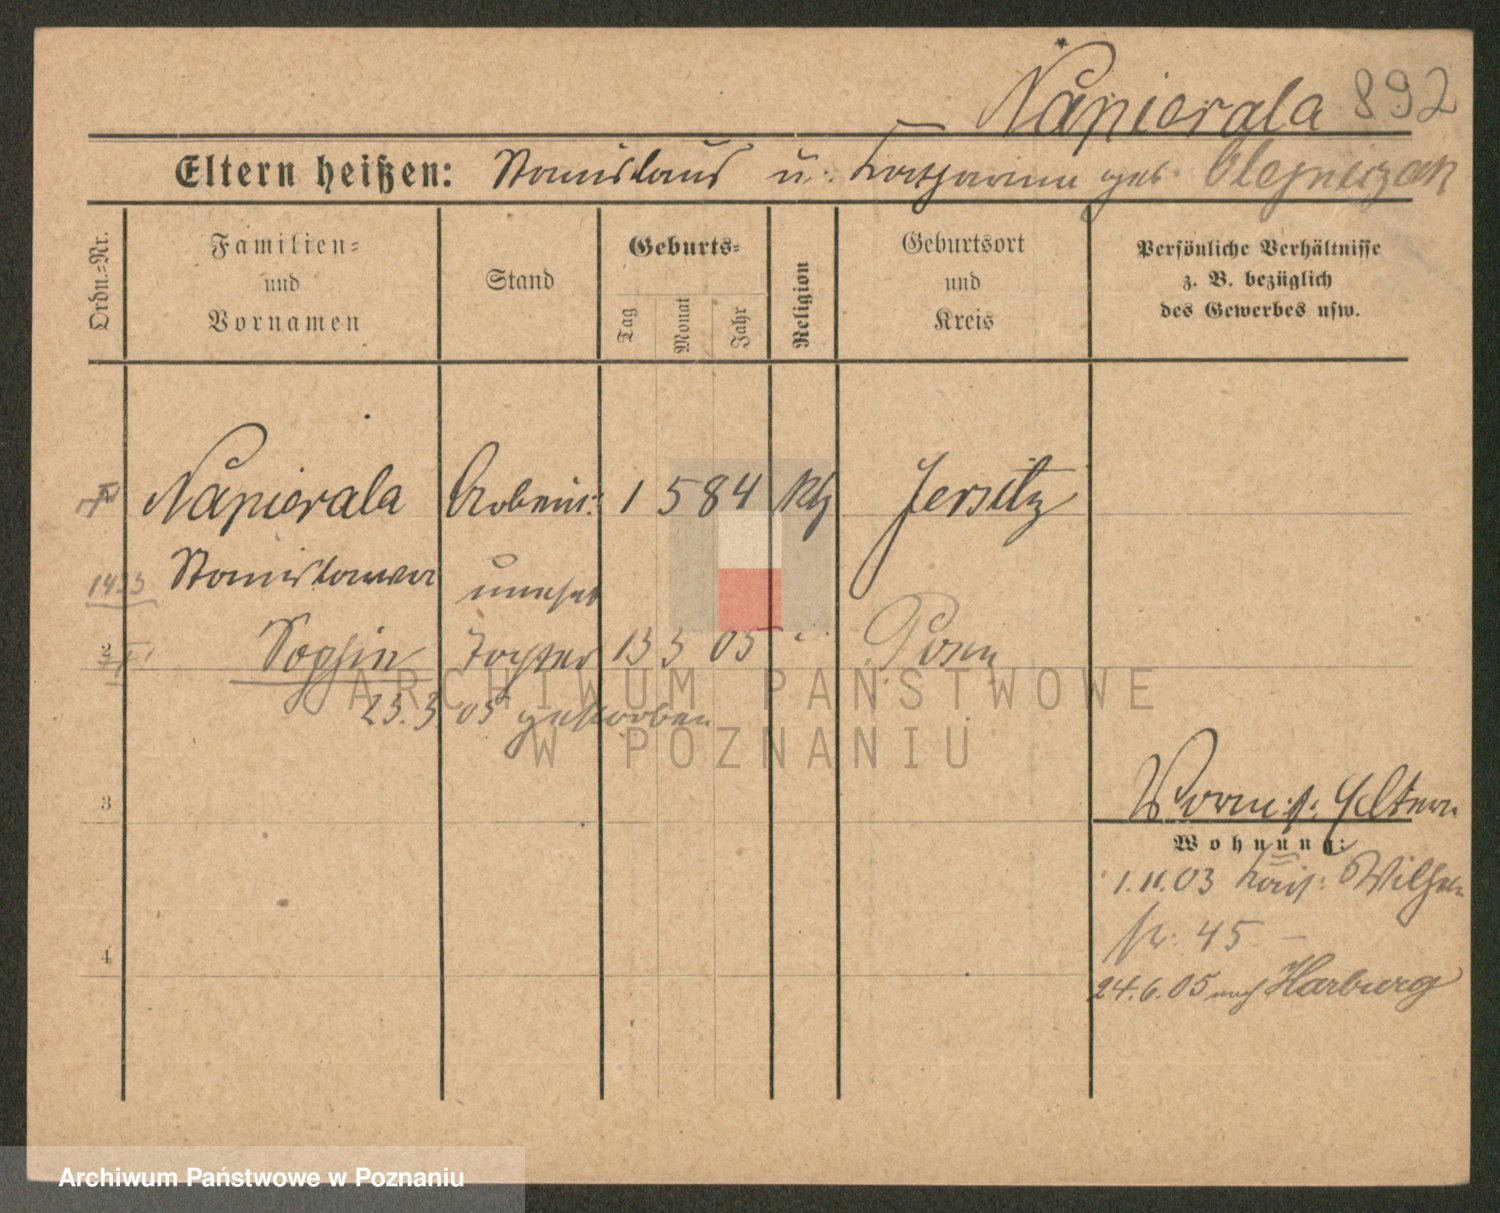 Napierala 892
Eltern heißen: Stanislaus u. Katharina geb. Olejniczak
Ordn.-Nr.
Familien-
und
Vornamen
Stand
Geburts-
Tag
Monat
Jahr
Religion
Geburtsort
und
Kreis
Persönliche Verhältnisse
z. B. bezüglich
des Gewerbes usw.
Napierala Arbeits: 1 5 84 Kth Jersitz
Stanislawa unehel
2 Sophie Tochter 13 3 05 Posen
23.3 05 gestorben
ARCHIWUM PAŃSTWOWE
W POZNANIU
3
Vorm. s. Eltern
Wohnung:
1.11.03 Kais: Wilhelm
str. 45
4
24.6.05 nach Harburg
Archiwum Państwowe w Poznaniu